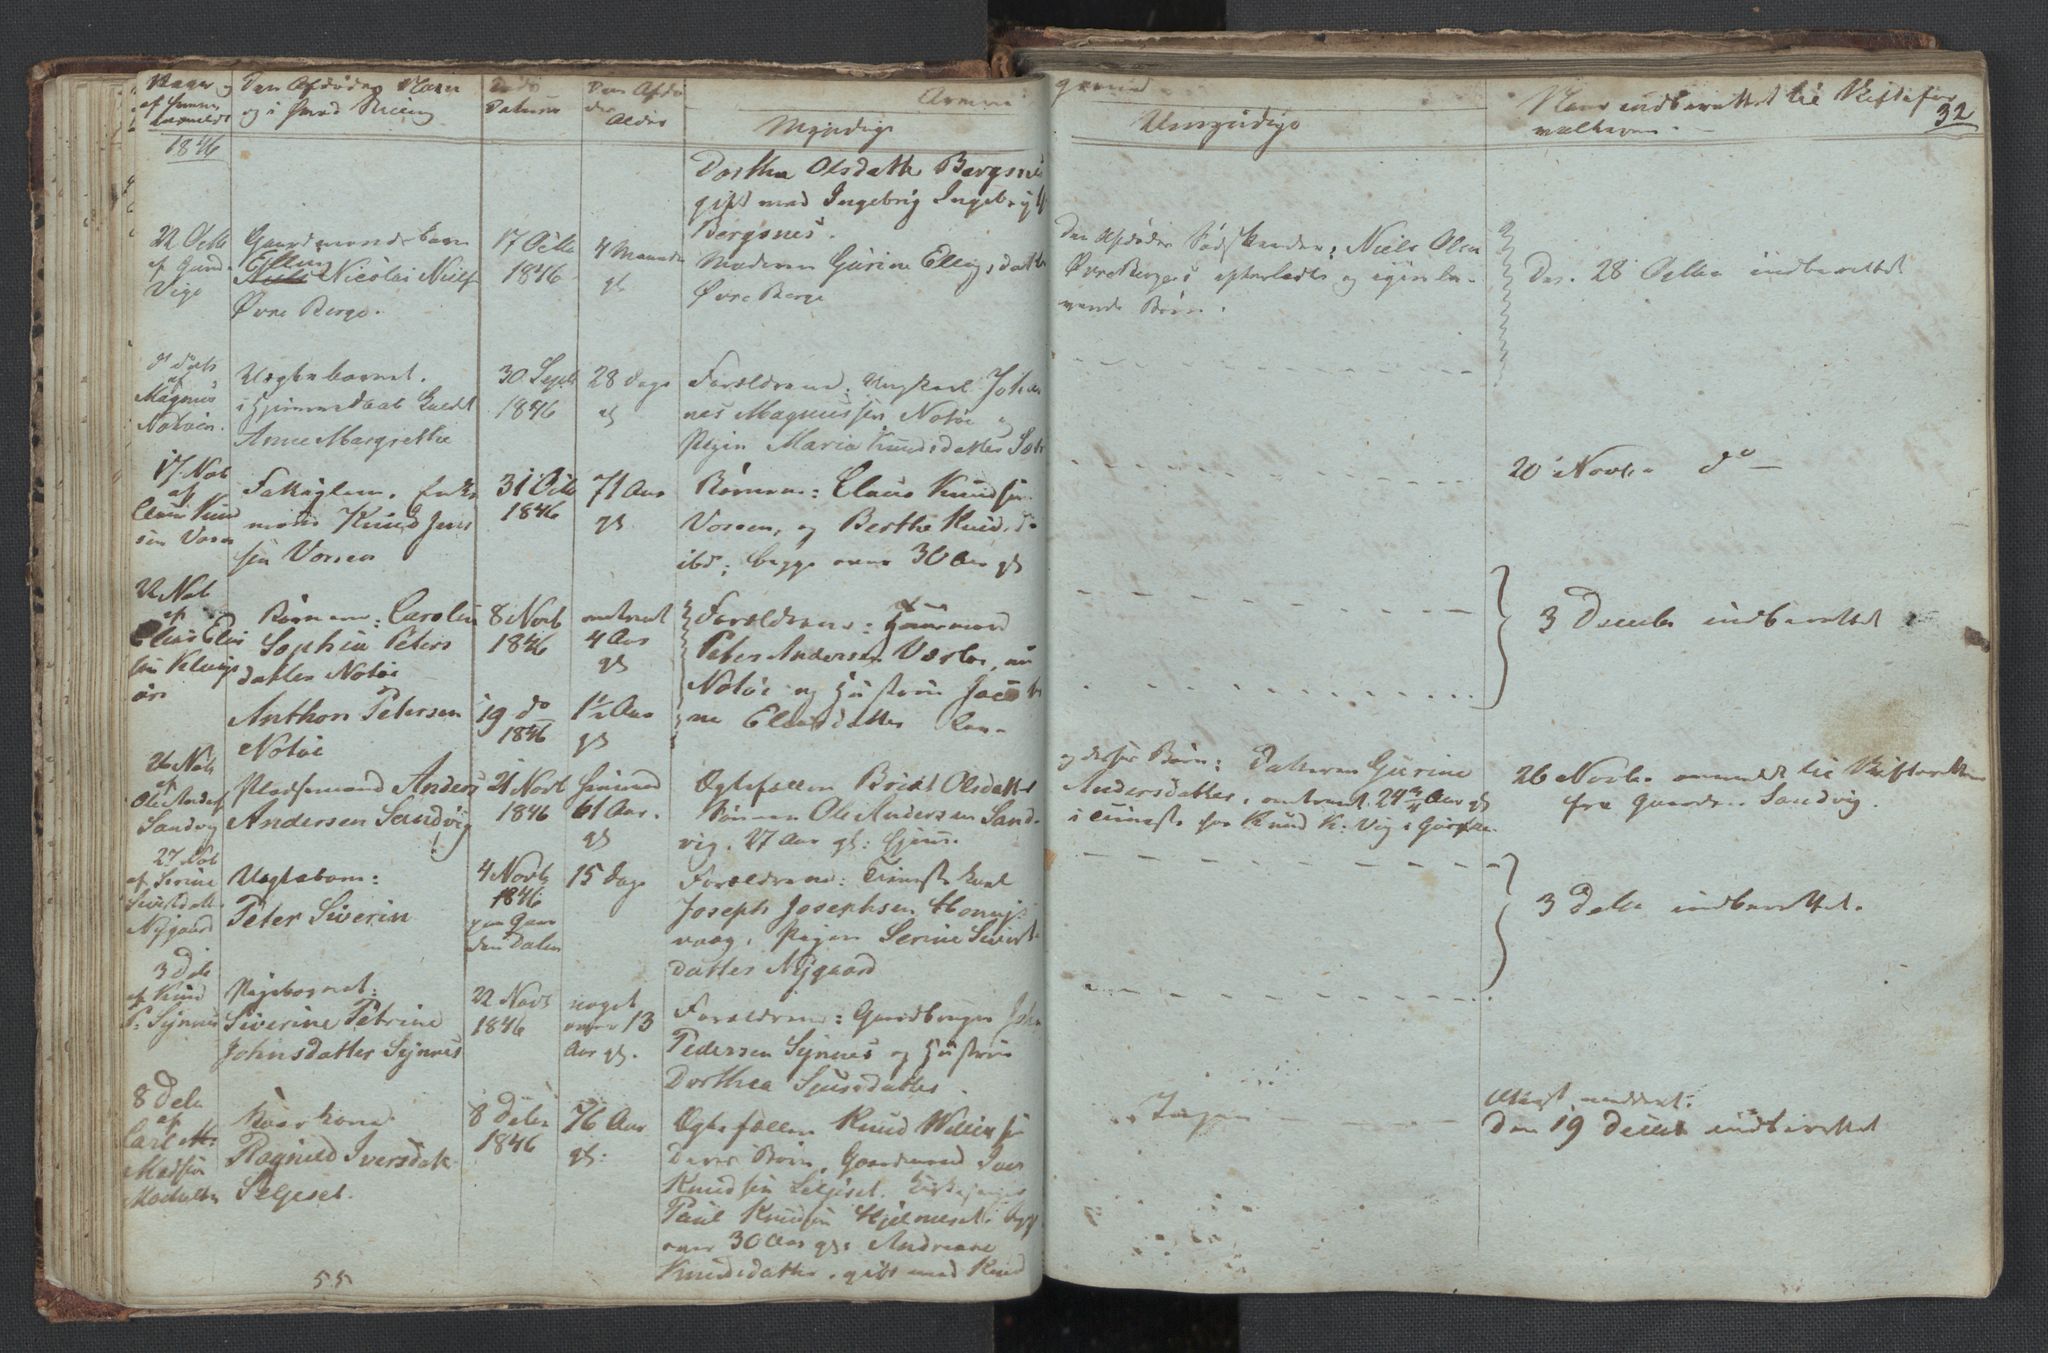 Naar og
af hvem
anmeldt
Den Afdødes Navn
og i hvad Stilling
Døds
Datum
Den Afdø
des
Alder
Arvin
Myndige
gerne
Umyndige
Naar indberettet til Skiftefor
valteren.
32
1846
Dorthea Olsdatter Bergsnes
gift med Ingebrig Ingebrigts
Bergsnes.
22 Octbr
af Gund.
Vige
Gaardmandsbarn
Elling
Nicolai Niels
Øvre Berge.
17 Octb
1846
4 Maaneder
gl
Moderen Gurine Ellingsdatter
Øvre Berge
Den Afdødes Sødskende: Niels Olsen
Øvre Berges efterladte og igjenle-
vende Børn.
Den 28 Octbr indberettet
af
Magnus
Notøen.
Uægtebarnet.
i Hjemmedaab kaldet
Anne Margrethe
30 Septb
1846
28 Dage
gl
Forældrene: Ungkarl Johan
nes Magnussen Notøe og
Pigen Maria Knudsdatter
20 Novbr do
17 Nov
af
Claus Knud
sen Vorren
Fattiglem, Enke
mand Knud Jens
sen Vorren
31 Octb
1846
71 Aar
gl
Børnene: Claus Knudsen
Vorren, og Berthe Knudsd.
ibd; begge over 30 Aar gl
22 Nov
af
Elias Elia
sen
Børnene: Caroline
Sophie Peters
datter Notøe
8 Novb
1846
omtrent
4 Aar
gl
Forældrene: Huusmand
Peter Andersen, nu
Notøe og Hustrue
ne Eliasdatter
3 December indberettet
Anthon Petersen
Notøe
19 do
1846
1½ Aar
gl
26 Nov
af
Ole Anders
Sandvig
Pladsemand Anders
Andersen Sandvig
21 Novb
1846
61 Aar.
gl
Ægtefællen Brit Olsdatter
Sønnen Ole Andersen Sand-
vig. 27 Aar gl: hjemme.
og deres Børn: Datteren Gurine
Andersdatter, omtrent 24 Aar gl
i Tieneste hos Knud K: Vig i
26 Novbr anmeldt til Skifteretten
fra Gaarden Sandvig.
27 Nov
af Serine
Sivertsdatter
Nygaard
Uægtebarn:
Peter Siverin
4 Novb
1846
paa Gaar
den Dalen
15 Dage
Forældrene: Tienestekarl
Joseph Josephsen
vaag, Pigen Serine Siverts
datter Nygaard
3 Decbr indberettet.
3 Decb
af Knud
P: Synnes
Pigebarnet:
Siverine Petrine
Johnsdatter Synnes
22 Novb
1846
noget
over 13
Aar gl.
Forældrene: Gaardbruger John
Pedersen Synnes og Hustrue
Dorthea Sjursdatter
8 Decbr
af
Carl
Madsen
Kaarkone
Ragnild Iversdatt.
Seljeset.
8 Decbr
1846
76 Aar
gl:
Ægtefællen Knud Willumsen
Deres Børn, Gaardmand Iver
Knudsen Seljeset.
Paul Knudsen Hjelmeset,
over 30 Aar gl: Andreane
Knudsdatter, gift med Knud
Ingen
Den 19 Decbr indberettet
55